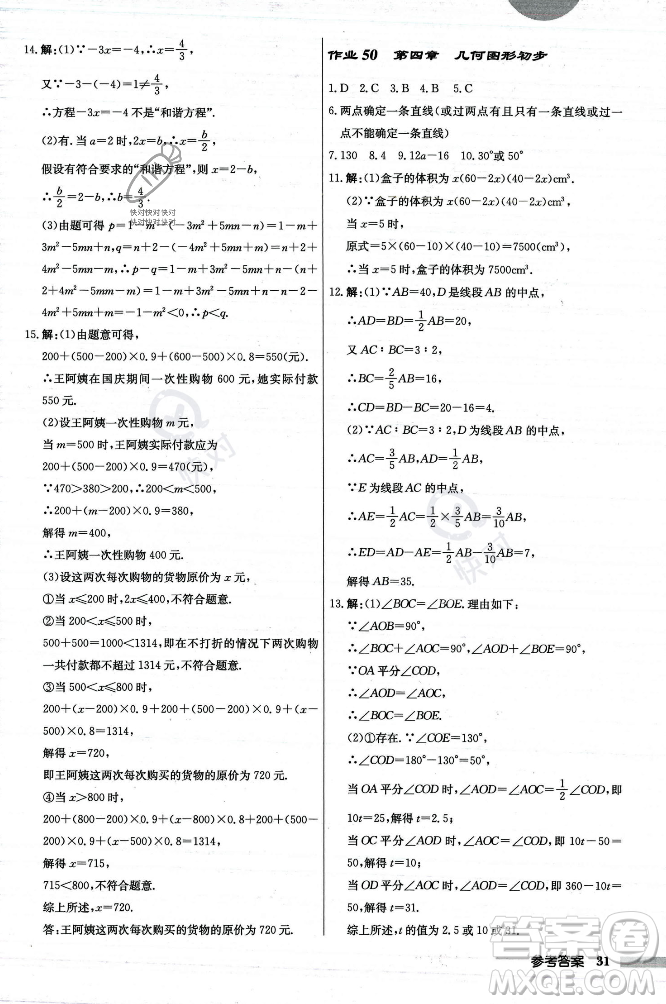 14.解:(1)∵-3x=-4,∴x=4/3,
又∵-3-(-4)=1≠4/3,
∴方程-3x=-4不是“和谐方程”.
(2)有.当a=2时,2x=b,∴x=b/2,
假设有符合要求的“和谐方程”,
∴b/2=2-b,∴b=4/3.
(3)由题可得p=1-m²-(-5mn+n)=1-m+
3m²-5mn+n,q=n+2-(-4m²+5mn+m)=n+
4m²-5mn-m+2,∴p-q=1-m+3m²-5mn+n-n-
4m²+5mn+m-2=-m²-1<0,∴p<q.
15.解:(1)由题意可得,
200+(500-200)×0.9+(600-500)×0.8=550(元).
∴王阿姨在国庆期间一次性购物600元,她实际付款
550元.
(2)设王阿姨一次性购物m元,
当m=500时,王阿姨实际付款应为
200+(500-200)×0.9=470(元).
∵470>380>200,∴200<m<500,
∴200+(m-200)×0.9=380,
解得m=400,
∴王阿姨一次性购物400元.
(3)设这两次每次购物的货物原价为x元,
①当x≤200时,不符合题意.
②当200<x≤500时,
500+500=1000<1314,即在不打折的情况下两次购物
一共付款都不超过1314元,不符合题意.
③当500<x≤800时,
200+(x-200)×0.9+200+(500-200)×0.9+(x-
500)×0.8=1314,
解得x=720,
即王阿姨这两次每次购买的货物的原价为720元.
④当x>800时,
200+(800-200)×0.9+200+(500-200)×0.9+(x-
500)×0.8=1314,
解得x=715,
715<800,不符合题意.
综上所述,x=720.
答:王阿姨这两次每次购买的货物的原价为720元.
作业50 第四章 几何图形初步
1.D 2.C 3.B 4.B 5.C
6.两点确定一条直线(或过两点有且只有一条直线或过一
点不能确定一条直线)
7.130 8.4 9.12a-16 10.30°或50°
11.解:(1)盒子的体积为x(60-2x)(40-2x)cm³.
(2)∵盒子的体积为x(60-2x)(40-2x)cm³,
当x=5时,
原式=5×(60-10)×(40-10)=7500(cm³)
∴当x=5时,盒子的体积为7500cm³.
12.解:(1)∵AB=40,D是线段AB的中点,
∴AD=BD=1/2AB=20,
又AC∶BC=3∶2,
∴BC=2/5AB=16,
∴CD=BD-BC=20-16=4.
(2)∵AC∶BC=3∶2,D为线段AB的中点,
∴AC=3/5AB,AD=1/2AB,
∵E为线段AC的中点,
∴AE=1/2AC=1/2×3/5AB=3/10AB,
∴ED=AD-AE=1/2AB-3/10AB=7,
解得AB=35.
13.解:(1)∠BOC=∠BOE.理由如下:
∵∠AOB=90°,
∴∠BOC+∠AOC=90°,∠AOD+∠BOE=90°,
∵OA平分∠COD,
∴∠AOD=∠AOC,
∴∠BOC=∠BOE.
(2)①存在.∵∠COE=130°,
∴∠COD=180°-130°=50°.
当OA平分∠COD时,∠AOD=∠AOC=1/2∠COD,即
10t=25,解得t=2.5;
当OC平分∠AOD时,∠AOC=∠COD,即10t-50=
50,解得t=10;
当OD平分∠AOC时,∠AOD=∠COD,即360-10t=
50,解得t=31.
综上所述,t的值为2.5或10或31.
参考答案 31
快对快对快对
快对快对快对
快对
快对
答案圈
MXQE.COM